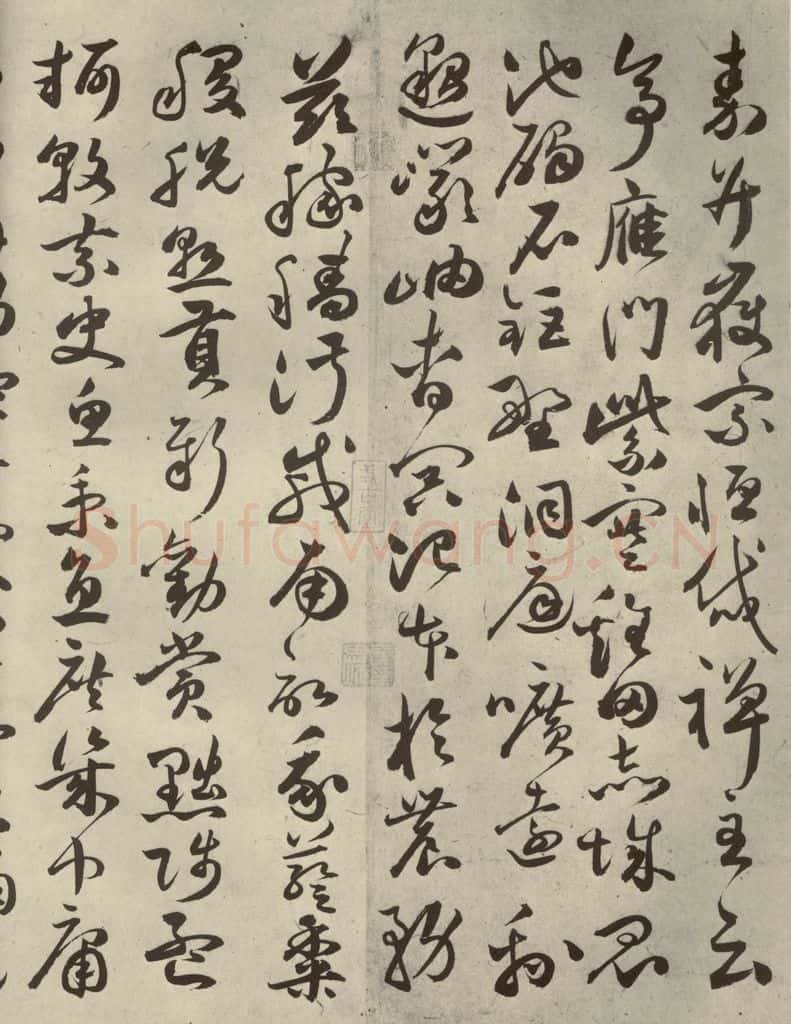 秦并嶽宗恆岱禪主云
亭雁門紫塞雞田赤城昆
池碣石鉅野洞庭曠遠綿
邈巖岫杳冥治本於農務
茲稼穡俶載南畝我藝黍
稷稅熟貢新勸賞黜陟孟
軻敦素史魚秉直庶幾中庸
Shufawang.CN